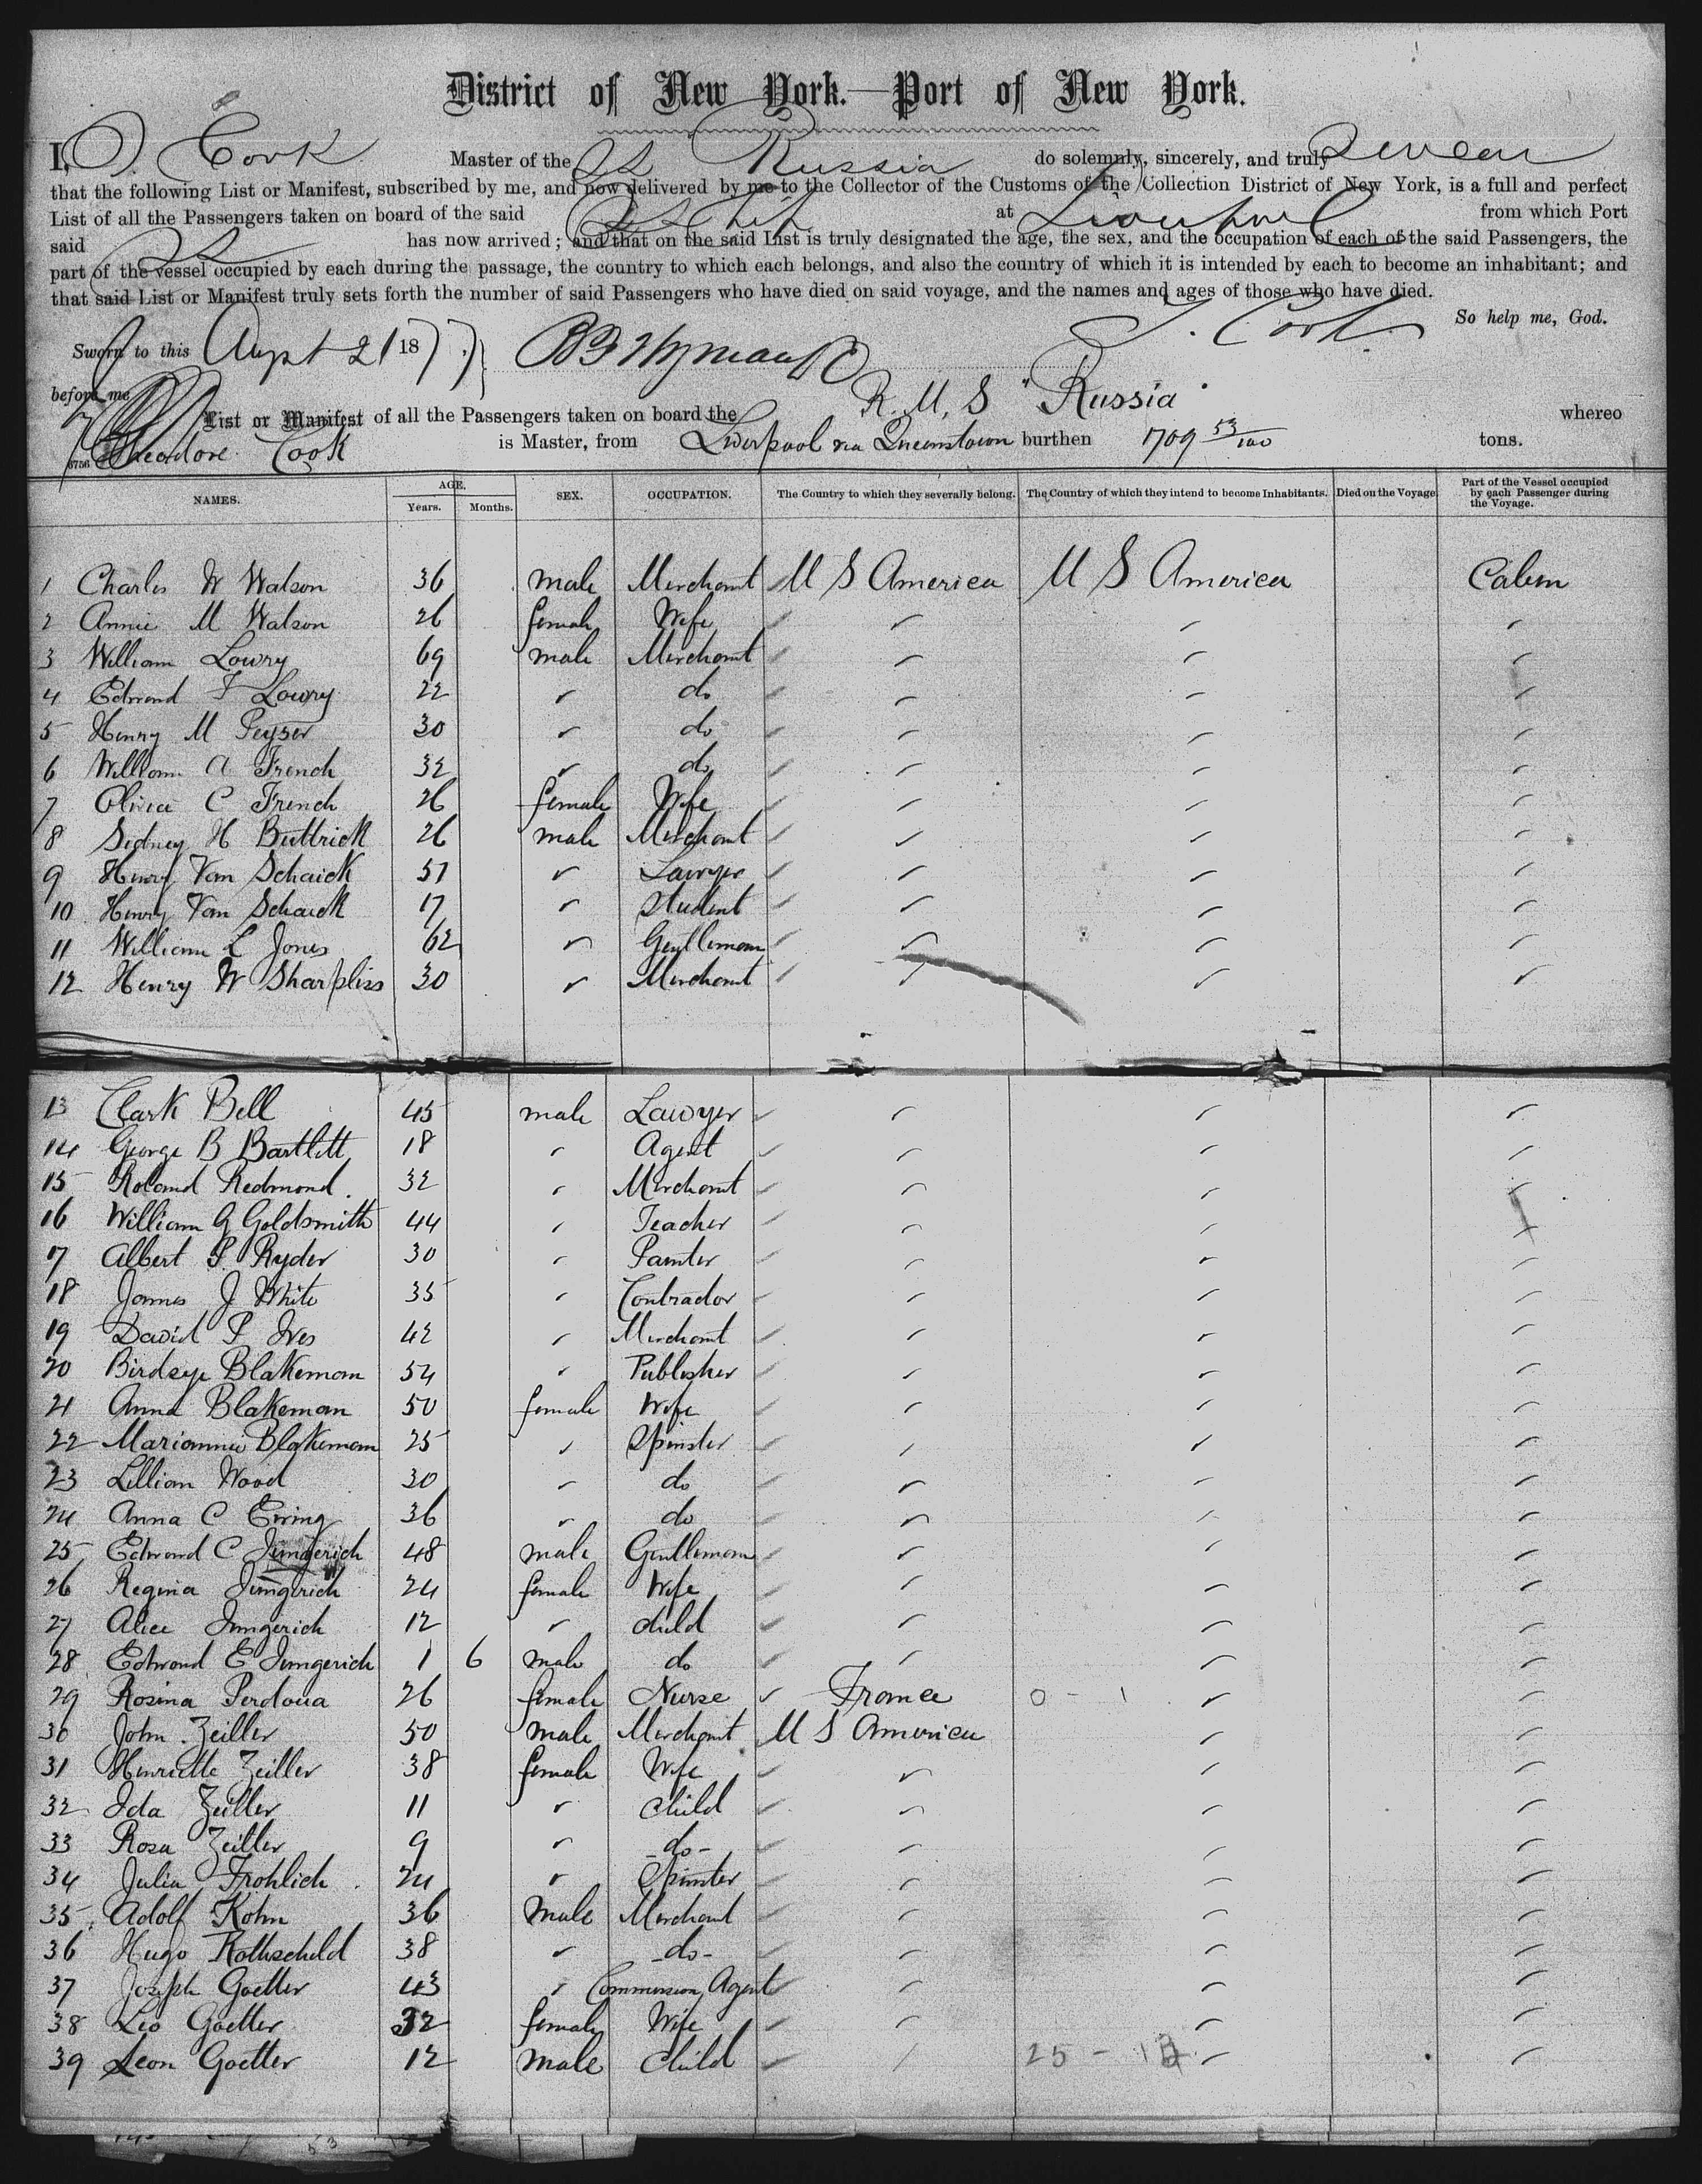 District of New York.—Port of New York.
I, T. Cook Master of the SS Russia do solemnly, sincerely, and truly Swear
that the following List or Manifest, subscribed by me, and now delivered by me to the Collector of the Customs of the Collection District of New York, is a full and perfect
List of all the Passengers taken on board of the said at Liverpool from which Port
said SS has now arrived; and that on the said List is truly designated the age, the sex, and the occupation of each of the said Passengers, the
part of the vessel occupied by each during the passage, the country to which each belongs, and also the country of which it is intended by each to become an inhabitant; and
that said List or Manifest truly sets forth the number of said Passengers who have died on said voyage, and the names and ages of those who have died.
So help me, God.
Sworn to this Augst 21 1877. T. Cook
before me
List or Manifest of all the Passengers taken on board the R. M. S "Russia" whereo
Theodore Cook is Master, from Liverpool via Queenstown burthen 1709 53/100 tons.
NAMES. AGE. Years. Months. SEX. OCCUPATION. The Country to which they severally belong. The Country of which they intend to become Inhabitants. Died on the Voyage. Part of the Vessel occupied by each Passenger during the Voyage.
1 Charles W Watson 36 male Merchant U S America U S America Cabin
2 Annie M Watson 26 female Wife
3 William Lowry 69 male Merchant
4 Edmond F Lowry 22 do
5 Henry M Peyser 30 do
6 William A French 32 do
7 Olivia C French 26 female Wife
8 Sidney H Buttrick 26 male Merchant
9 Henry Van Schaick 51 Lawyer
10 Henry Van Schaick 17 Student
11 William L Jones 62 Gentleman
12 Henry W Sharpliss 30 Merchant
13 Clark Bell 45 male Lawyer
14 George B Bartlett 18 Agent
15 Roland Redmond 32 Merchant
16 William G Goldsmith 44 Teacher
17 Albert P Ryder 30 Painter
18 James J White 35 Contractor
19 David P Ives 42 Merchant
20 Birdsye Blakeman 54 Publisher
21 Anna Blakeman 50 female Wife
22 Mariannie Blakeman 25 Spinster
23 Lillian Wood 30 do
24 Anna C Ewing 36 do
25 Edmond C Jungerich 48 male Gentleman
26 Regina Jungerich 24 female Wife
27 Alice Jungerich 12 child
28 Edmond E Jungerich 1 6 male do
29 Rosina Perdoua 26 female Nurse France 0 - 1
30 John Zeiller 50 male Merchant U S America
31 Henriette Zeiller 38 female Wife
32 Ida Zeiller 11 child
33 Rosa Zeiller 9 -do-
34 Julia Frohlich 24 Spinster
35 Adolf Kohn 36 Male Merchant
36 Hugo Rothschild 38 -do-
37 Joseph Goetter 43 Commission Agent
38 Leo Goetter 32 female Wife
39 Leon Goetter 12 male Child 25 -